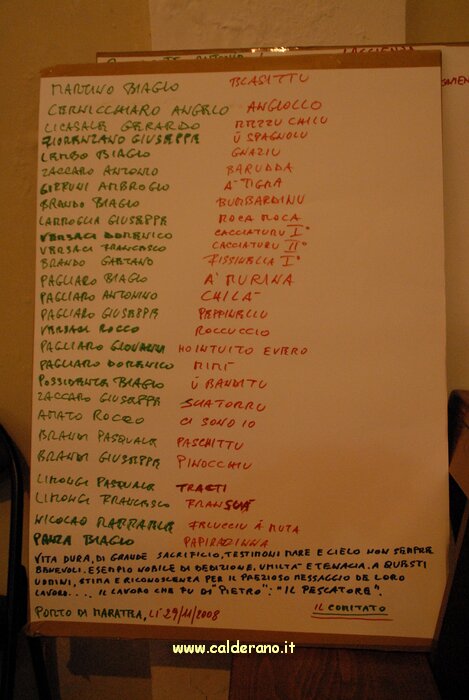 MARTINO BIAGIO BLASITTU
CERNICCHIARO ANGELO ANGIOLLO
LICASALE GERARDO MEZZU CHILU
FIORENZANO GIUSEPPE Ù SPAGNOLU
LEMBO BIAGIO GNAZIU
ZACCARO ANTONIO BARUDDA
GIFFUNI AMBROGIO A' TIGRA
BRANDO BIAGIO BUMBARDINU
LARROGLIA GIUSEPPE ROCA ROCA
VERSACI DOMENICO CACCIATURU I°
VERSACI FRANCESCO CACCIATURU II°
BRANDO GAETANO FISSINELLA I°
PAGLIARO BIAGIO A' MURINA
PAGLIARO ANTONINO CHILÀ
PAGLIARO GIUSEPPE PEPPINELLU
VERSACI ROCCO ROCCUCCIO
PAGLIARO GIOVANNI HO INTUITO EVERO
PAGLIARO DOMENICO MIMÌ
POSSIDENTE BIAGIO Ù BANDITU
ZACCARO GIUSEPPE SCIATORRU
AMATO ROCCO CI SONO IO
BRANDI PASQUALE PASCHITTU
BRANDI GIUSEPPE PINOCCHIU
LIMONGI PASQUALE TRACTI
LIMONGI FRANCESCO FRANSUÀ
NICOLAO RAFFAELE FELUCCIU Á MUTA
PANZA BIAGIO PAPIRAZINNA
VITA DURA, DI GRANDE SACRIFICIO, TESTIMONI MARE E CIELO NON SEMPRE
BENEVOLI. ESEMPIO NOBILE DI DEDIZIONE, UMILTÀ E TENACIA. A QUESTI
UOMINI, STIMA E RICONOSCENZA PER IL PREZIOSO MESSAGGIO DEL LORO
LAVORO.... IL LAVORO CHE FU DI "PIETRO": "IL PESCATORE".
PORTO DI MARATEA, LÌ 29/11/2008 IL COMITATO
www.calderano.it